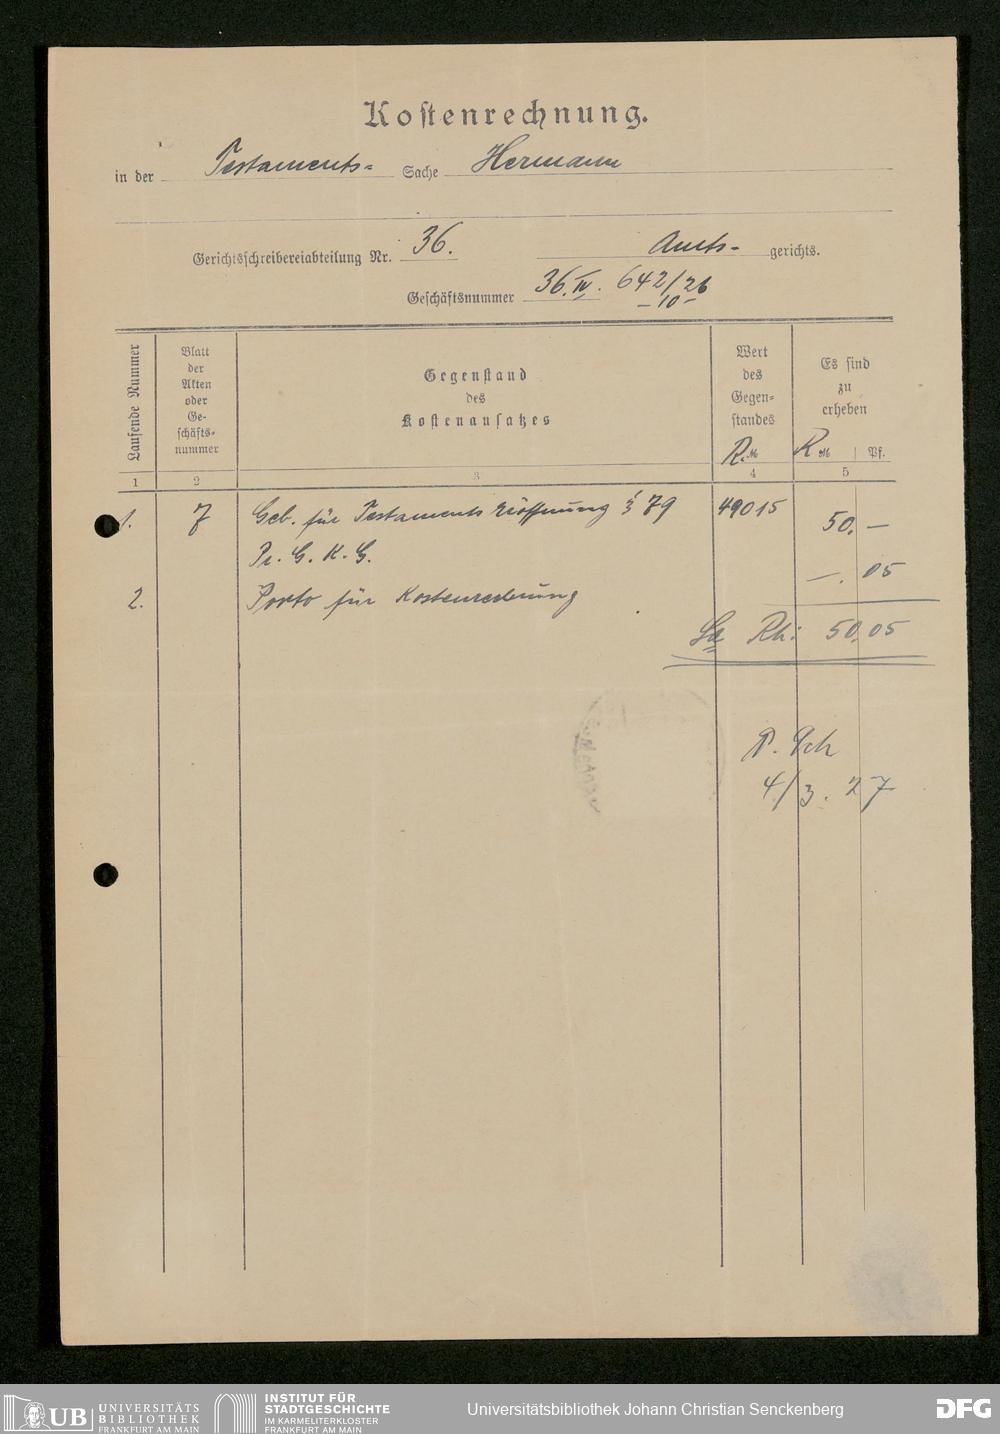 Kostenrechnung.
in der Testaments- Sache Hermann
Gerichtsschreibereiabteilung Nr. 36. Amts- gerichts.
Geschäftsnummer 36. IV. 642/26
-10-
Laufende Nummer
Blatt der Akten oder Ge-schäfts-nummer
Gegenstand des Kostenansatzes
Wert des Gegen-standes
R.M
Es sind zu erheben
R M Pf.
1 2 3 4 5
1. 7 Geb. für Testaments Eröffnung § 79 49015 50. —
Pr. G. K. G.
2. Porto für Kostenrechnung —. 05
Sa 50.05
4/3. 27
UB UNIVERSITÄTS
BIBLIOTHEK
FRANKFURT AM MAIN
INSTITUT FÜR
STADTGESCHICHTE
IM KARMELITERKLOSTER
FRANKFURT AM MAIN
Universitätsbibliothek Johann Christian Senckenberg
DFG